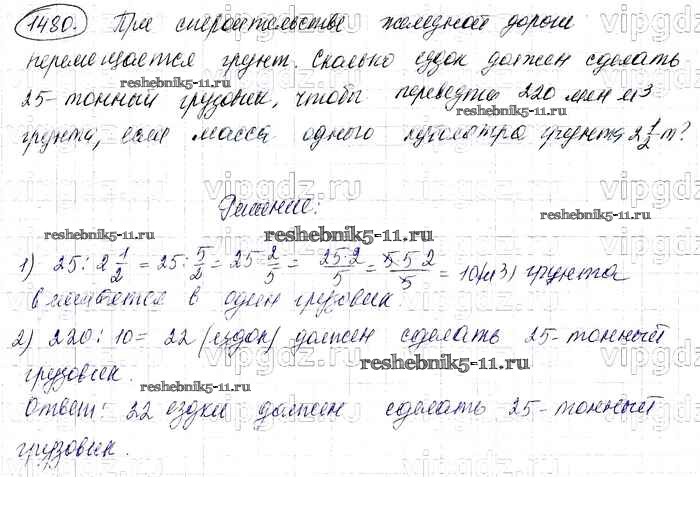 1480. При строительстве железной дороги
перемещается грунт. Сколько ездок должен сделать
reshebnik5-11.ru
25-тонный грузовик, чтобы перевезти 220 млн м3
reshebnik5-11.ru
грунта, если масса одного кубометра грунта 2 1/2 т?
vipgdz.ru
Решение:
reshebnik5-11.ru
reshebnik5-11.ru
1) 25 : 2 1/2 = 25 : 5/2 = 25 · 2/5 = 25·2/5 = 5·5·2/5 = 10(м3) грунта
вмещается в один грузовик.
2) 220 : 10 = 22 (ездок) должен сделать 25-тонный
reshebnik5-11.ru
грузовик.
reshebnik5-11.ru
Ответ: 22 ездки должен сделать 25-тонный
грузовик.
vipgdz.ru